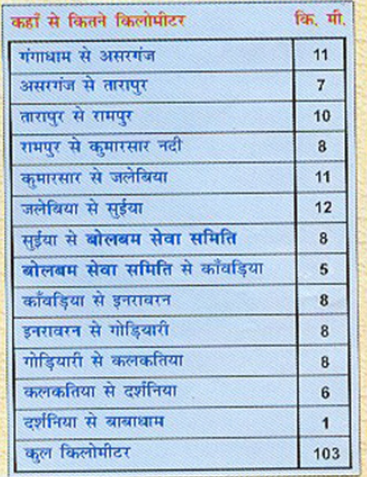 कहाँ से कितने किलोमीटर कि. मी.
गंगाधाम से असरगंज 11
असरगंज से तारापुर 7
तारापुर से रामपुर 10
रामपुर से कुमारसार नदी 8
कुमारसार से जलेबिया 11
जलेबिया से सुईया 12
सुईया से बोलबम सेवा समिति 8
बोलबम सेवा समिति से काँवड़िया 5
काँवड़िया से इनरावरन 8
इनरावरन से गोड़ियारी 8
गोड़ियारी से कलकतिया 8
कलकतिया से दर्शनिया 6
दर्शनिया से बाबाधाम 1
कुल किलोमीटर 103